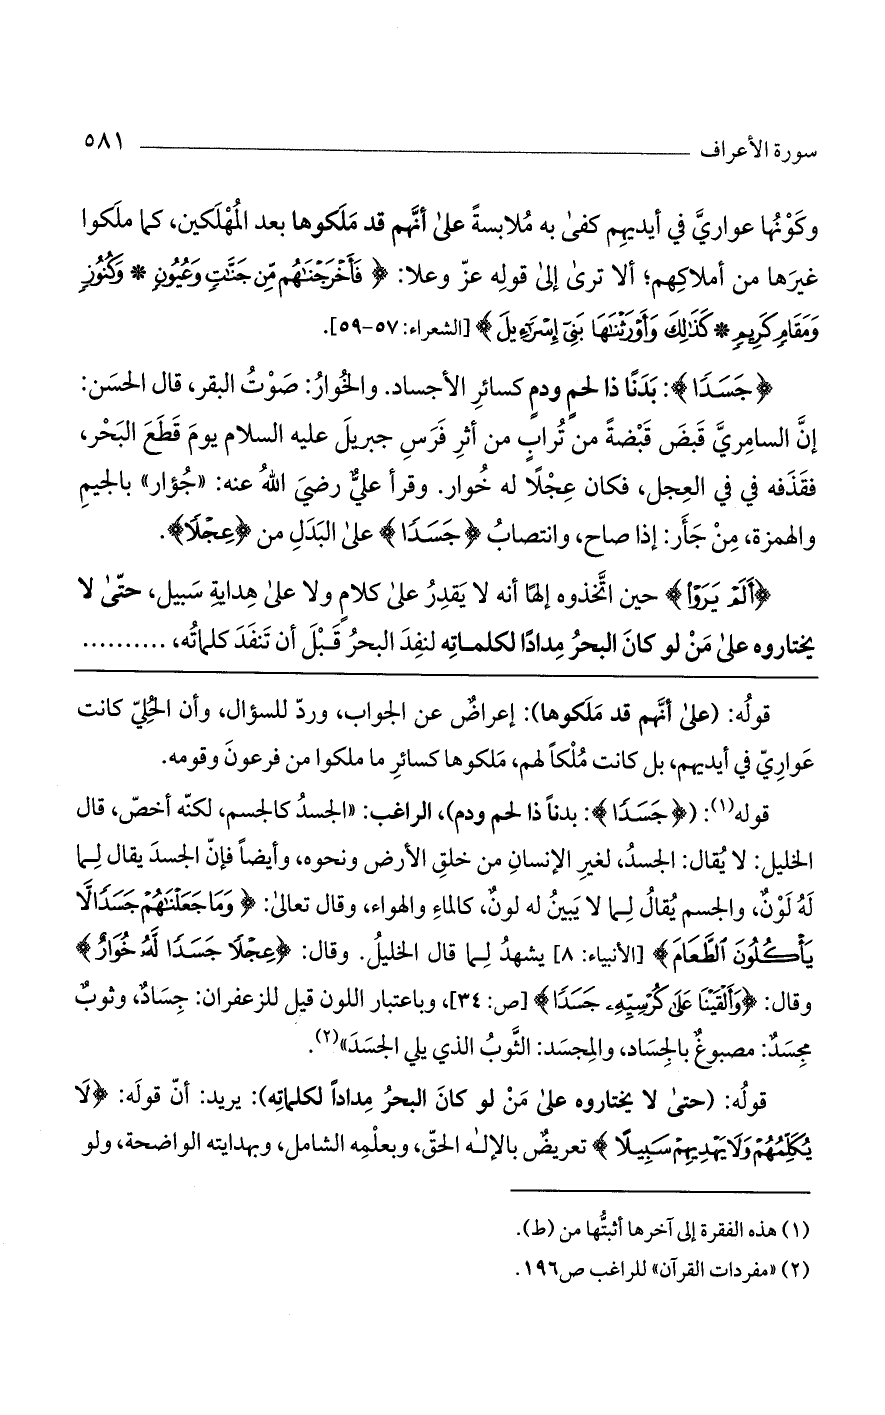 سورة الأعراف ٥٨١
وكَوْنُها عواريَّ في أيديهم كفىٰ به مُلابسةً علىٰ أنَّهم قد مَلَكوها بعد المُهْلَكين، كما ملَكوا
غيرَها من أملاكِهم؛ ألا ترىٰ إلىٰ قولِه عزّ وعلا: ﴿ فَأَخْرَجْنَٰهُم مِّن جَنَّٰتٍ وَعُيُونٍ * وَكُنُوزٍ
وَمَقَامٍ كَرِيمٍ * كَذَٰلِكَ وَأَوْرَثْنَٰهَا بَنِىٓ إِسْرَٰٓءِيلَ ﴾ [الشعراء: ٥٧-٥٩].
﴿ جَسَدًا ﴾: بَدَنًا ذا لحمٍ ودمٍ كسائرِ الأجساد. والخُوارُ: صَوْتُ البقر، قال الحسَن:
إنَّ السامِريَّ قَبضَ قَبْضةً من تُرابٍ من أثرِ فَرَسِ جبريلَ عليه السلام يومَ قَطَعَ البَحْر،
فقَذَفه في في العِجل، فكان عِجْلًا له خُوار. وقرأ عليٌّ رضيَ اللهُ عنه: «جُؤار» بالجيمِ
والهمزة، مِنْ جَأَر: إذا صاح، وانتصابُ ﴿ جَسَدًا ﴾ علىٰ البَدَلِ من ﴿عِجْلًا﴾.
﴿أَلَمْ يَرَوْا﴾ حين اتَّخذوه إلهًا أنه لا يَقدِرُ علىٰ كلامٍ ولا علىٰ هِدايةِ سَبيل، حتّىٰ لا
يختاروه علىٰ مَنْ لو كانَ البحرُ مِدادًا لكلماتِه لنفِدَ البحرُ قَبْلَ أن تَنفَدَ كلماتُه، ..........
قولُه: (علىٰ أنَّهم قد مَلَكوها): إعراضٌ عن الجواب، وردّ للسؤال، وأن الحُليّ كانت
عَواريّ في أيديهم، بل كانت مُلْكاً لهم، مَلكوها كسائرِ ما ملكوا من فرعونَ وقومه.
قوله(١): (﴿ جَسَدًا ﴾: بدناً ذا لحم ودم)، الراغب: «الجسدُ كالجسم، لكنّه أخصّ، قال
الخليل: لا يُقال: الجسدُ، لغيرِ الإنسانِ من خلقِ الأرض ونحوه، وأيضاً فإنّ الجسدَ يقال لِما
لَهُ لَوْنٌ، والجسم يُقالُ لِما لا يَبينُ له لونٌ، كالماءِ والهواء، وقال تعالىٰ: ﴿ وَمَا جَعَلْنَٰهُمْ جَسَدًا لَّا
يَأْكُلُونَ ٱلطَّعَامَ ﴾ [الأنبياء: ٨] يشهدُ لِما قال الخليلُ. وقال: ﴿عِجْلًا جَسَدًا لَّهُۥ خُوَارٌ ﴾
وقال: ﴿وَأَلْقَيْنَا عَلَىٰ كُرْسِيِّهِۦ جَسَدًا ﴾ [ص: ٣٤]، وباعتبار اللون قيل للزعفران: جِسَادٌ، وثوبٌ
مِجسَدٌ: مصبوغٌ بالجِساد، والمِجسَد: الثَّوبُ الذي يلي الجسَدَ»(٢).
قولُه: (حتىٰ لا يختاروه علىٰ مَنْ لو كانَ البحرُ مِداداً لكلماتِه): يريد: أنّ قولَه: ﴿لَا
يُكَلِّمُهُمْ وَلَا يَهْدِيهِمْ سَبِيلًا ﴾ تعريضٌ بالإلـٰه الحقّ، وبعلْمِه الشامل، وبهدايته الواضحة، ولو
(١) هذه الفقرة إلى آخرها أثبتُّها من (ط).
(٢) «مفردات القرآن» للراغب ص١٩٦.